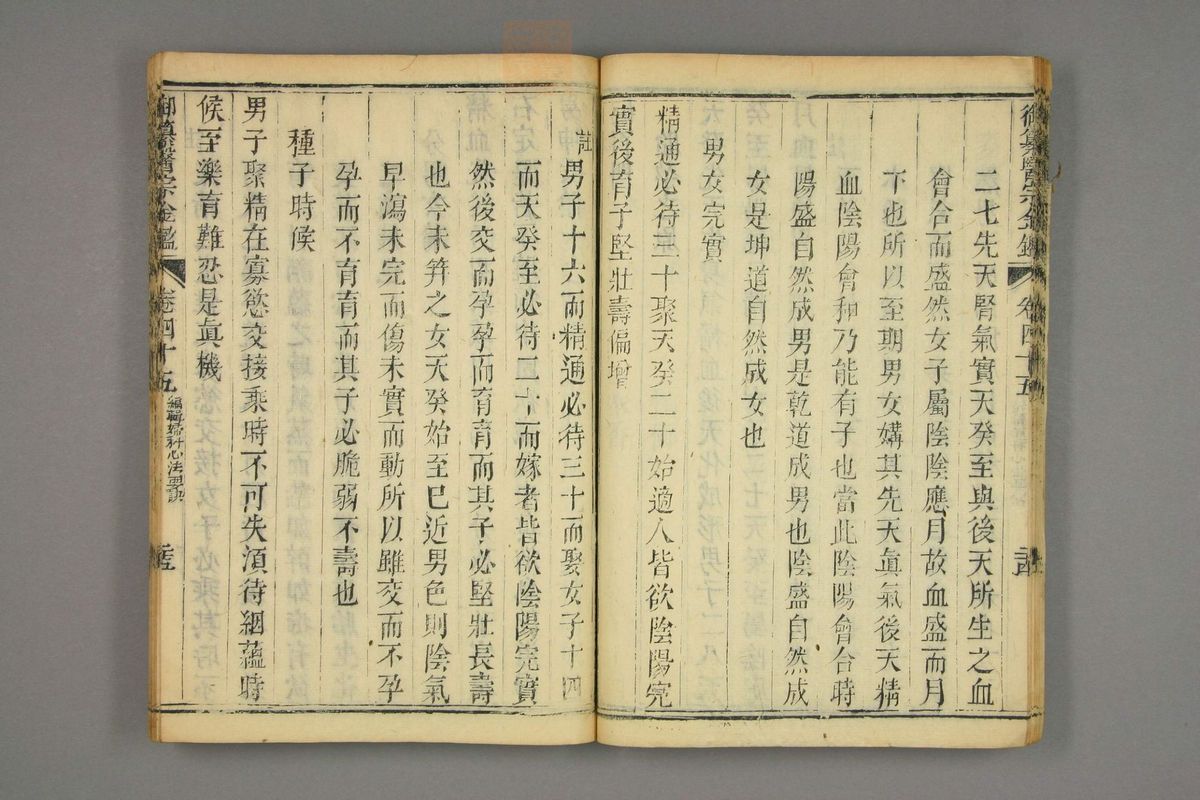 御纂醫宗金鑑 卷四十五
二七先天腎氣實天癸至與後天所生之血
會合而盛然女子屬陰陰應月故血盛而月
下也所以至期男女媾其先天眞氣後天精
血陰陽會和乃能有子也當此陰陽會合時
陽盛自然成男是乾道成男也陰盛自然成
女是坤道自然成女也
男女完實
精通必待三十娶天癸二十始適人皆欲陰陽完
實後育子堅壯壽偏增
註男子十六而精通必待三十而娶女子十四
而天癸至必待二十而嫁者皆欲陰陽完實
然後交而孕孕而育育而其子必堅壯長壽
也今未筓之女天癸始至已近男色則陰氣
早瀉未完而傷未實而動所以雖交而不孕
孕而不育育而其子必脆弱不壽也
種子時候
男子聚精在寡慾交接乘時不可失湏待絪蘊時
候至樂育難忍是眞機
御纂醫宗金鑑 卷四十五 編輯婦科心法要訣 二十五